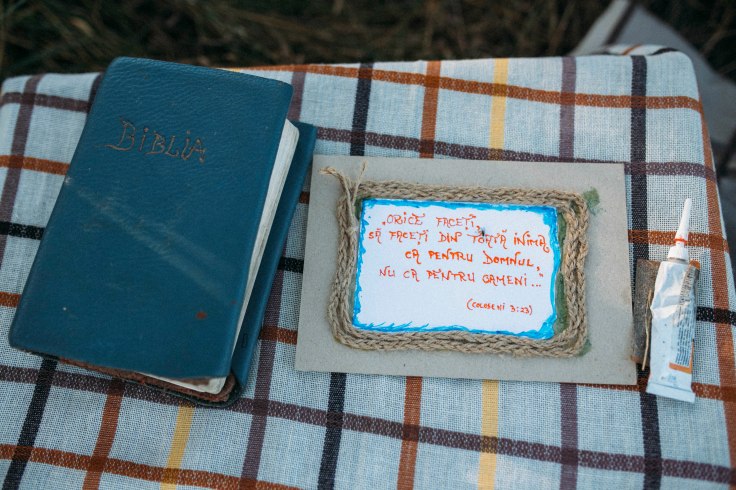 BIBLIA
„ORICE FACEȚI,
SĂ FACEȚI DIN TOATĂ INIMA
CA PENTRU DOMNUL,
NU CA PENTRU OAMENI..."
(COLOSENI 3:23)